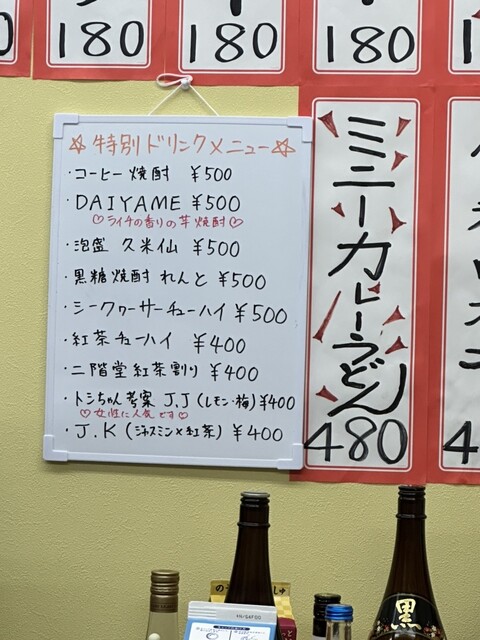 180
180
180
☆特別ドリンクメニュー☆
・コーヒー焼酎 ¥500
・DAIYAME ¥500
♡ライチの香りの芋焼酎♡
・泡盛 久米仙 ¥500
・黒糖焼酎 れんと ¥500
・シークヮーサーチューハイ ¥500
・紅茶チューハイ ¥400
・二階堂紅茶割り ¥400
・トシちゃん考案 J.J(レモン・梅)¥400
♡女性に人気です♡
・J.K(ジャスミン×紅茶)¥400
ミニーカレーうどん
480
黒